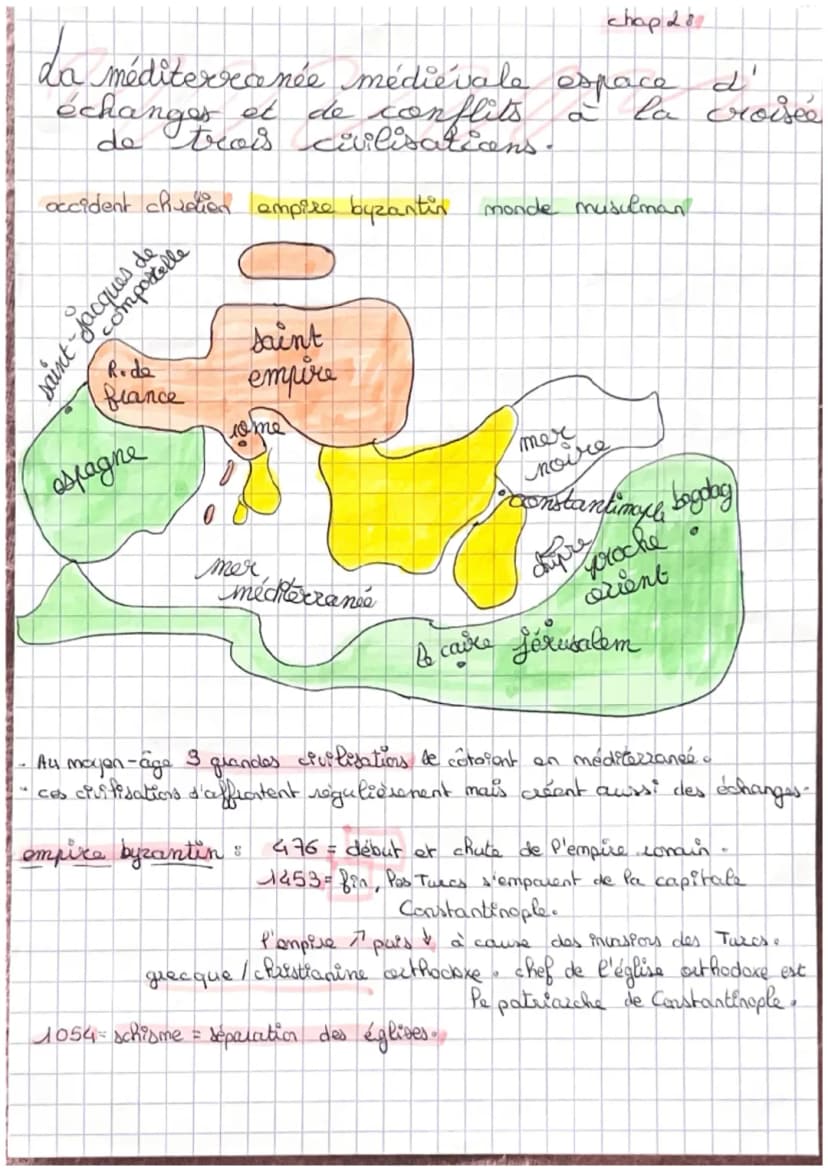 chap 2 :
La méditerranée médiévale espace d'
échanges et de conflits à la croisée
de trois civilisations.
occident chrétien empire byzantin monde musulman
saint-jacques de
compostelle
saint
empire
R. de
france
rome
espagne
mer
noire
constantinople
bagdag
chipre
proche
orient
mer
méditerranée
le caire jérusalem
- Au moyen-âge 3 grandes civilisations se côtoient en méditerranée.
- ces civilisations s'affrontent régulièrement mais créent aussi des échanges.
empire byzantin : 476 = début et chute de l'empire romain.
1453 = fin, les Turcs s'emparent de la capitale
Constantinople.
l'empire ↗ puis ↓ à cause des invasions des Turcs.
grecque / christianine orthodoxe. chef de l'église orthodoxe est
le patriarche de Constantinople.
1054 = schisme = séparation des églises.